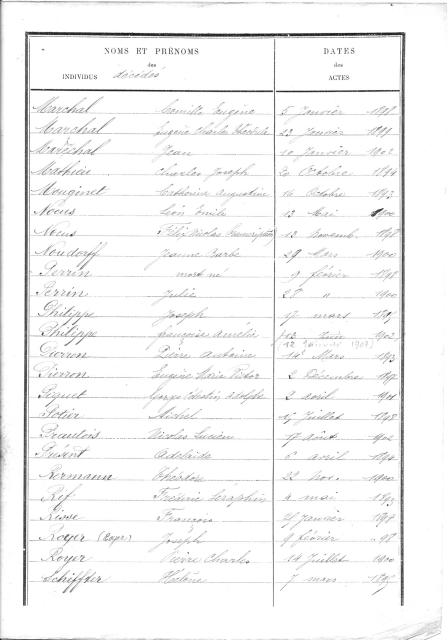 NOMS ET PRÉNOMS DATES
des des
INDIVIDUS décédés ACTES
Marchal Camille Eugène 5 Janvier 1898
Marchal Eugène Charles 23 Janvier 1899
Maréchal Jean 20 Janvier 1902
Mathieu Charles Joseph 20 Octobre 1894
Mouginet Catherine Augustine 14 Octobre 1893
Noeus Léon Emile 13 Mai 1900
Noeus Félix Nicolas (transcription) 13 Novemb. 1898
Noudorff Jeanne Barbe 29 Mars 1900
Perrin mort né 9 février 1898
Perrin Julie 28 " 1900
Philippe Joseph 17 mars 1895
Philippe françoise Amélie 13 Juin 1902
(12 1902)
Pierron Pierre Antoine 14 Mars 1893
Pierron Eugène Marie Victor 2 Décembre
Piquet Georges Célestin Adolphe 2 avril 1901
Potier Michel 17 Juillet 1898
Nicolas Lucien 17 août 1902
Présent Adélaïde 6 avril 1894
Rermann Théodore 22 Nov. 1900
Réf Frédéric Séraphin 4 mai 1893
Risse François 25 Janvier 1898
Royer (Royr) Joseph 9 février " 98
Royer Pierre Charles 14 Juillet 1900
Schiffter Hélène 7 mars 1895